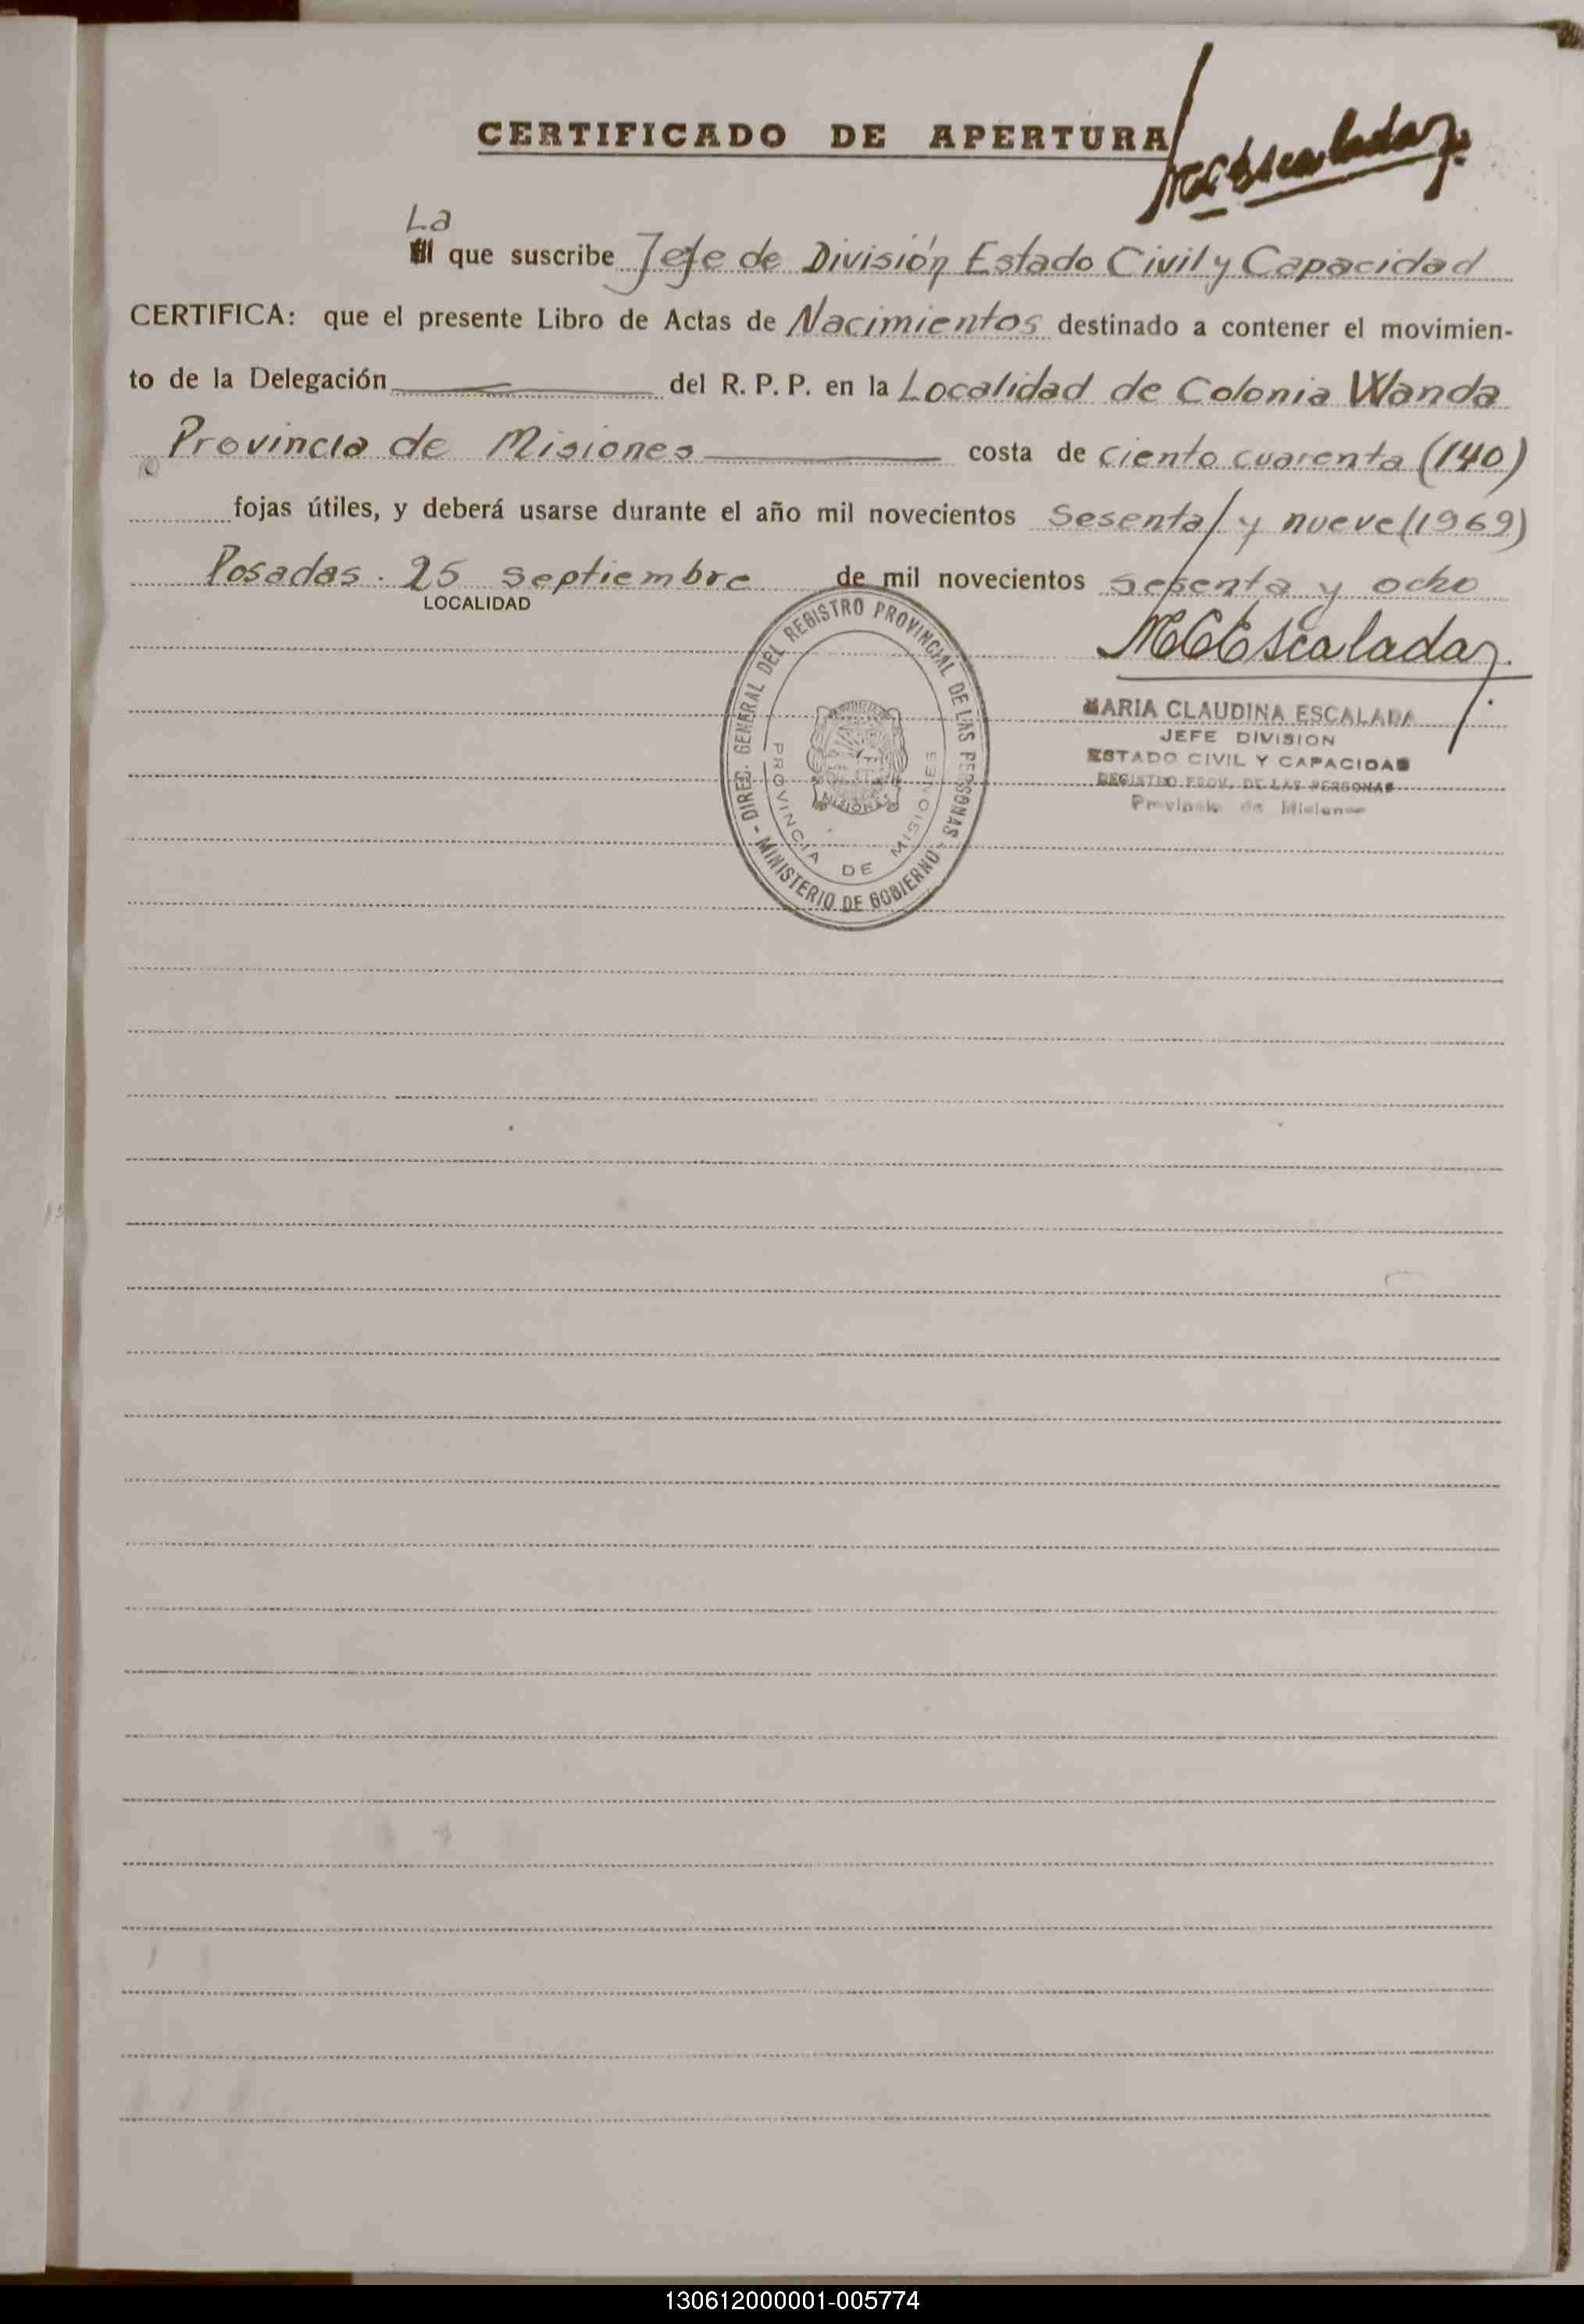 CERTIFICADO DE APERTURA
MCEscalada
La
El que suscribe Jefe de División Estado Civil y Capacidad
CERTIFICA: que el presente Libro de Actas de Nacimientos destinado a contener el movimien-
to de la Delegación del R. P. P. en la Localidad de Colonia Wanda
Provincia de Misiones costa de ciento cuarenta (140)
fojas útiles, y deberá usarse durante el año mil novecientos Sesenta y nueve (1969)
Posadas. 25 septiembre de mil novecientos sesenta y ocho
LOCALIDAD
MCEscalada
MARIA CLAUDINA ESCALADA
JEFE DIVISION
ESTADO CIVIL Y CAPACIDAD
REGISTRO PROV. DE LAS PERSONAS
Provincia de Misiones
DIREC. GENERAL DEL REGISTRO PROVINCIAL DE LAS PERSONAS - MINISTERIO DE GOBIERNO -
PROVINCIA DE MISIONES
MISIONES
130612000001-005774